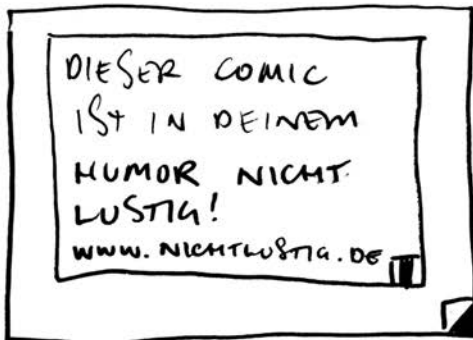 DIESER COMIC
IST IN DEINEM
HUMOR NICHT
LUSTIG!
WWW.NICHTLUSTIG.DE